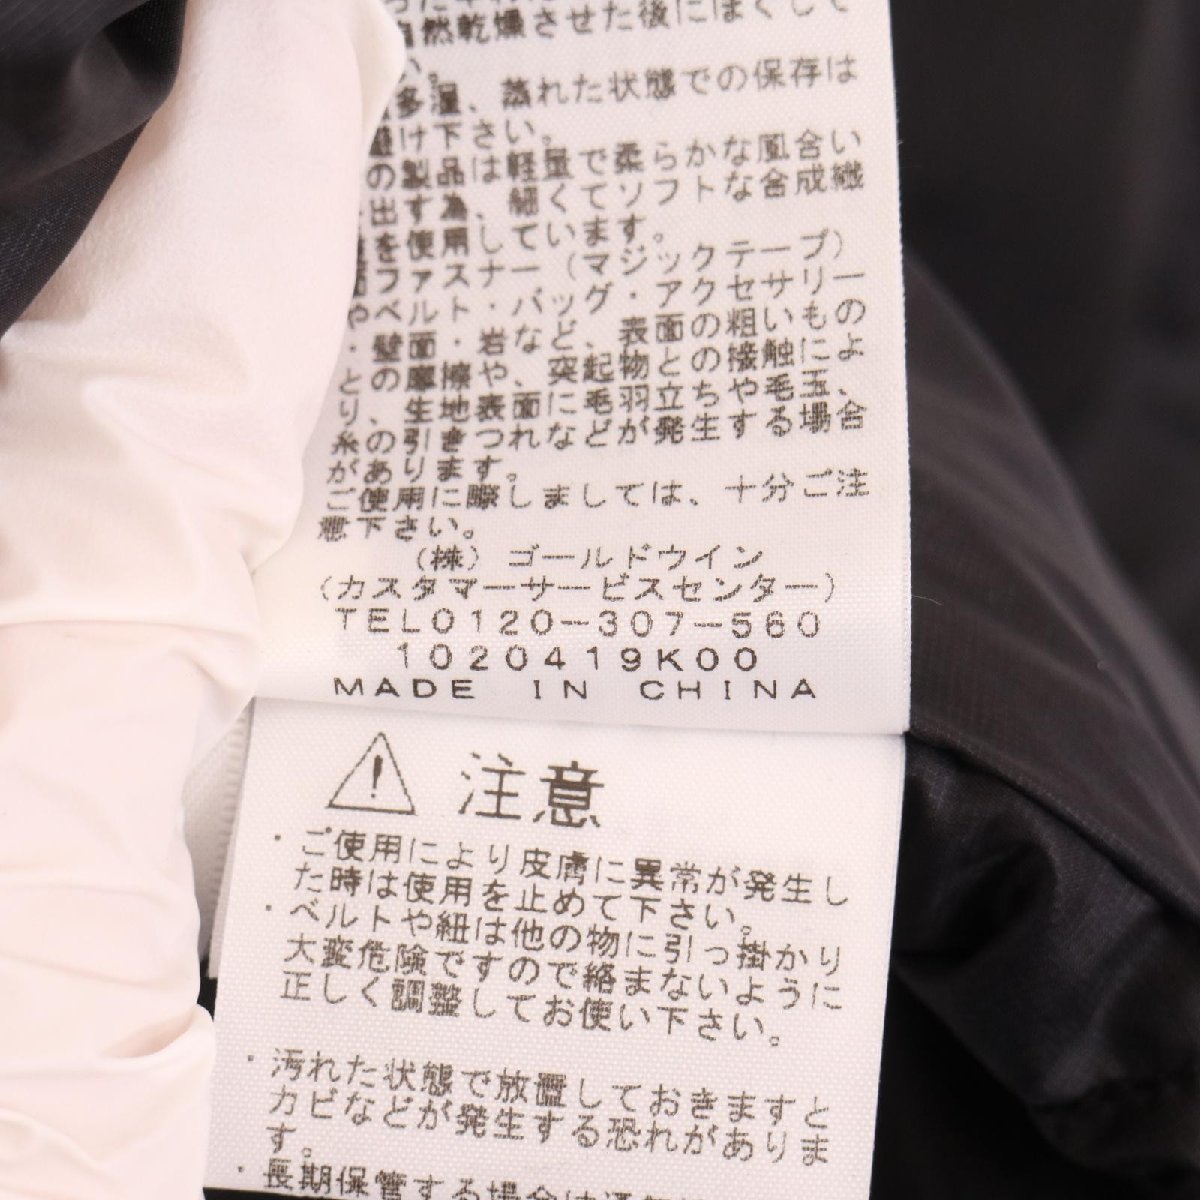 自然乾燥させた後にほぐして
い。
多湿、蒸れた状態での保存は
避け下さい。
の製品は軽量で柔らかな風合い
出す為、細くてソフトな合成繊
を使用しています。
ファスナー(マジックテープ)
やベルト・バッグ・アクセサリー
・壁面・岩など、表面の粗いもの
との摩擦や、突起物との接触によ
り、生地表面に毛羽立ちや毛玉、
糸の引きつれなどが発生する場合
があります。
ご使用に際しましては、十分ご注
意下さい。
(株)ゴールドウイン
(カスタマーサービスセンター)
TEL0120-307-560
1020419K00
MADE IN CHINA
注意
・ご使用により皮膚に異常が発生し
た時は使用を止めて下さい。
・ベルトや紐は他の物に引っ掛かり
大変危険ですので絡まないように
正しく調整してお使い下さい。
・汚れた状態で放置しておきますと
カビなどが発生する恐れがありま
す。
・長期保管する場合は